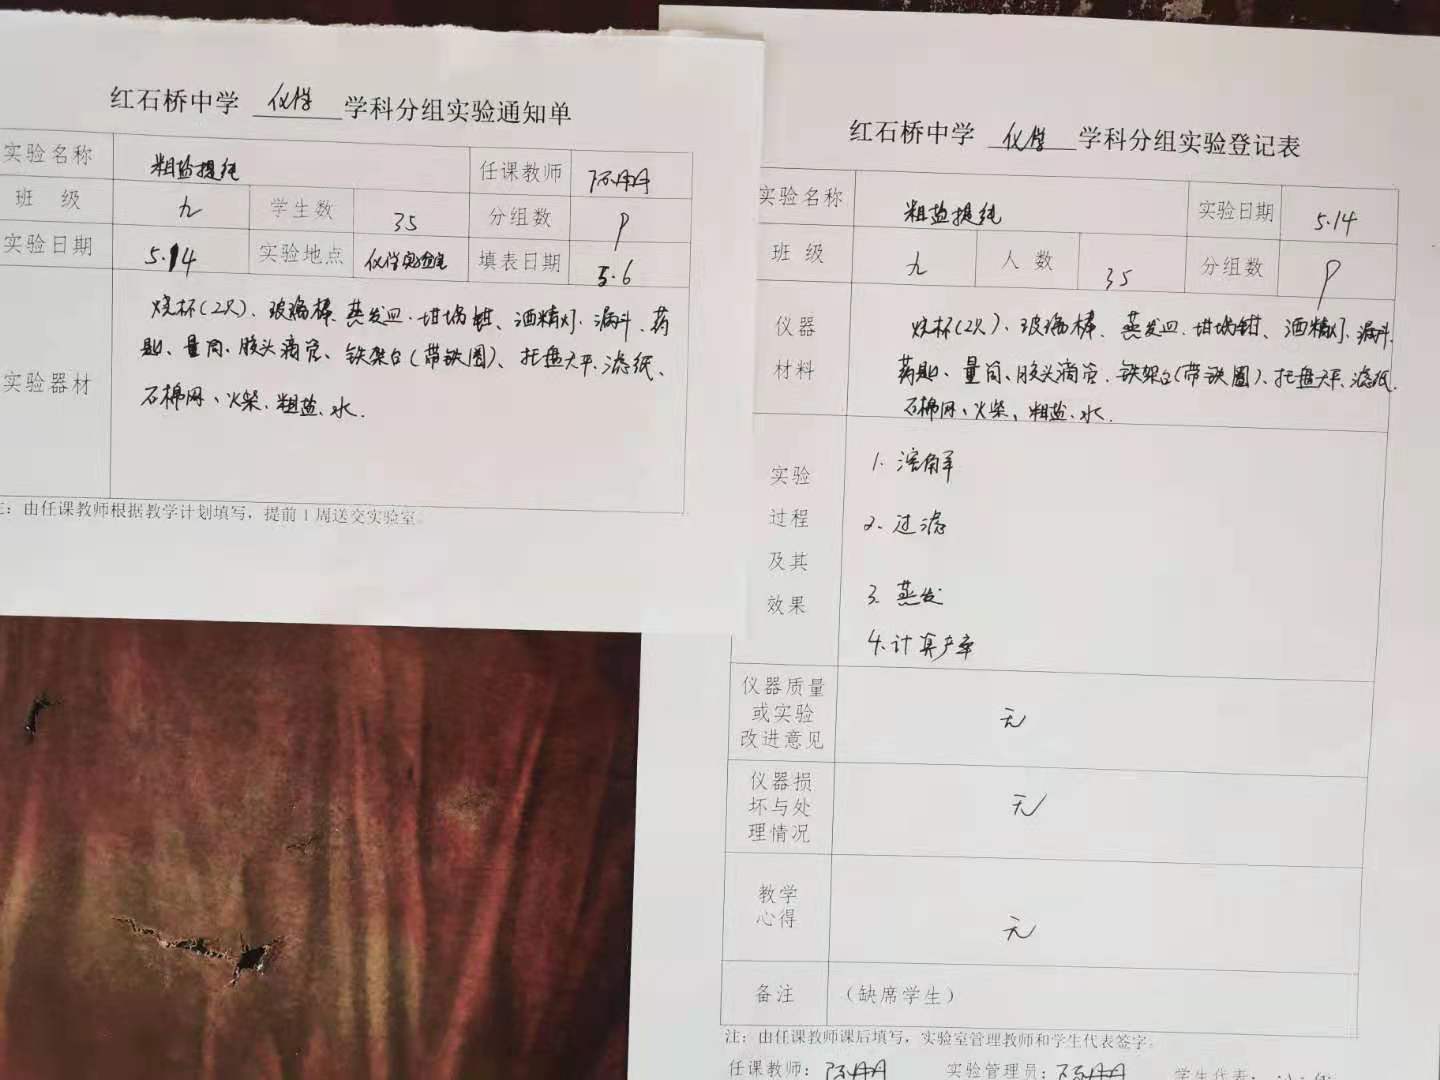 红石桥中学 化学 学科分组实验通知单
实验名称 粗盐提纯 任课教师
班 级 九 学生数 35 分组数
实验日期 5.14 实验地点 化学实验室 填表日期 5.6
实验器材
烧杯(2只)、玻璃棒、蒸发皿、坩埚钳、酒精灯、漏斗、药
匙、量筒、胶头滴管、铁架台(带铁圈)、托盘天平、滤纸、
石棉网、火柴、粗盐、水.
注：由任课教师根据教学计划填写，提前1周送交实验室。
红石桥中学 化学 学科分组实验登记表
实验名称 粗盐提纯 实验日期 5.14
班 级 九 人 数 35 分组数
仪器
材料
烧杯(2只)、玻璃棒、蒸发皿、坩埚钳、酒精灯、漏斗、
药匙、量筒、胶头滴管、铁架台(带铁圈)、托盘天平、滤纸、
石棉网、火柴、粗盐、水.
实验
过程
及其
效果
1. 溶解
2. 过滤
3. 蒸发
4. 计算产率
仪器质量
或实验
改进意见
无
仪器损
坏与处
理情况
无
教学
心得
无
备注 （缺席学生）
注：由任课教师课后填写，实验室管理教师和学生代表签字。
任课教师： 实验管理员： 学生代表：